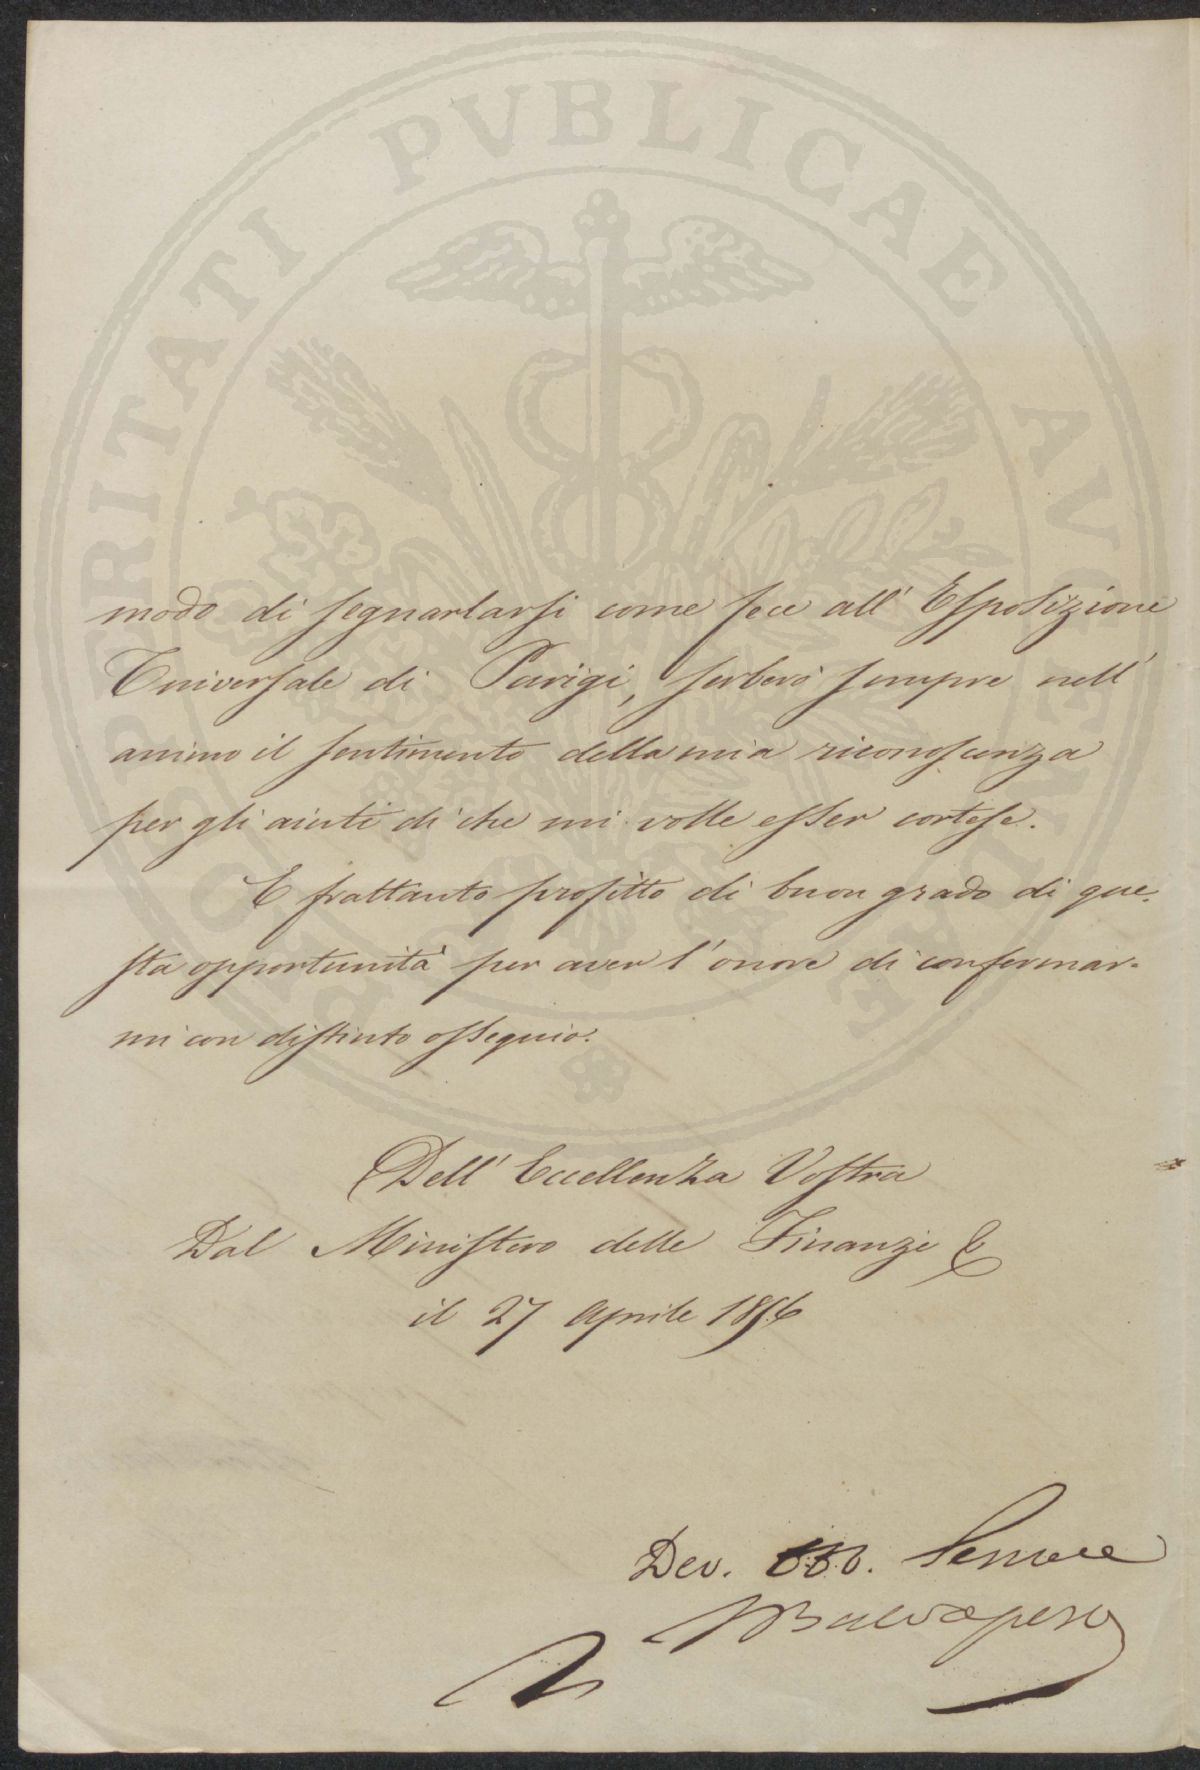 PROSPERITATI PVBLICAE AVGENDAE
modo di segnarlarsi come fece all' Esposizione
Universale di Parigi, serberò sempre nell'
animo il sentimento della mia riconoscenza
per gli aiuti di che mi volle esser cortese.
E frattanto profitto di buon grado di que-
sta opportunità per aver l'onore di confermar-
mi con distinto ossequio.
Dell' Eccellenza Vostra
Dal Ministero delle Finanze
il 27 Aprile 1856
Dev. Obb. Servore